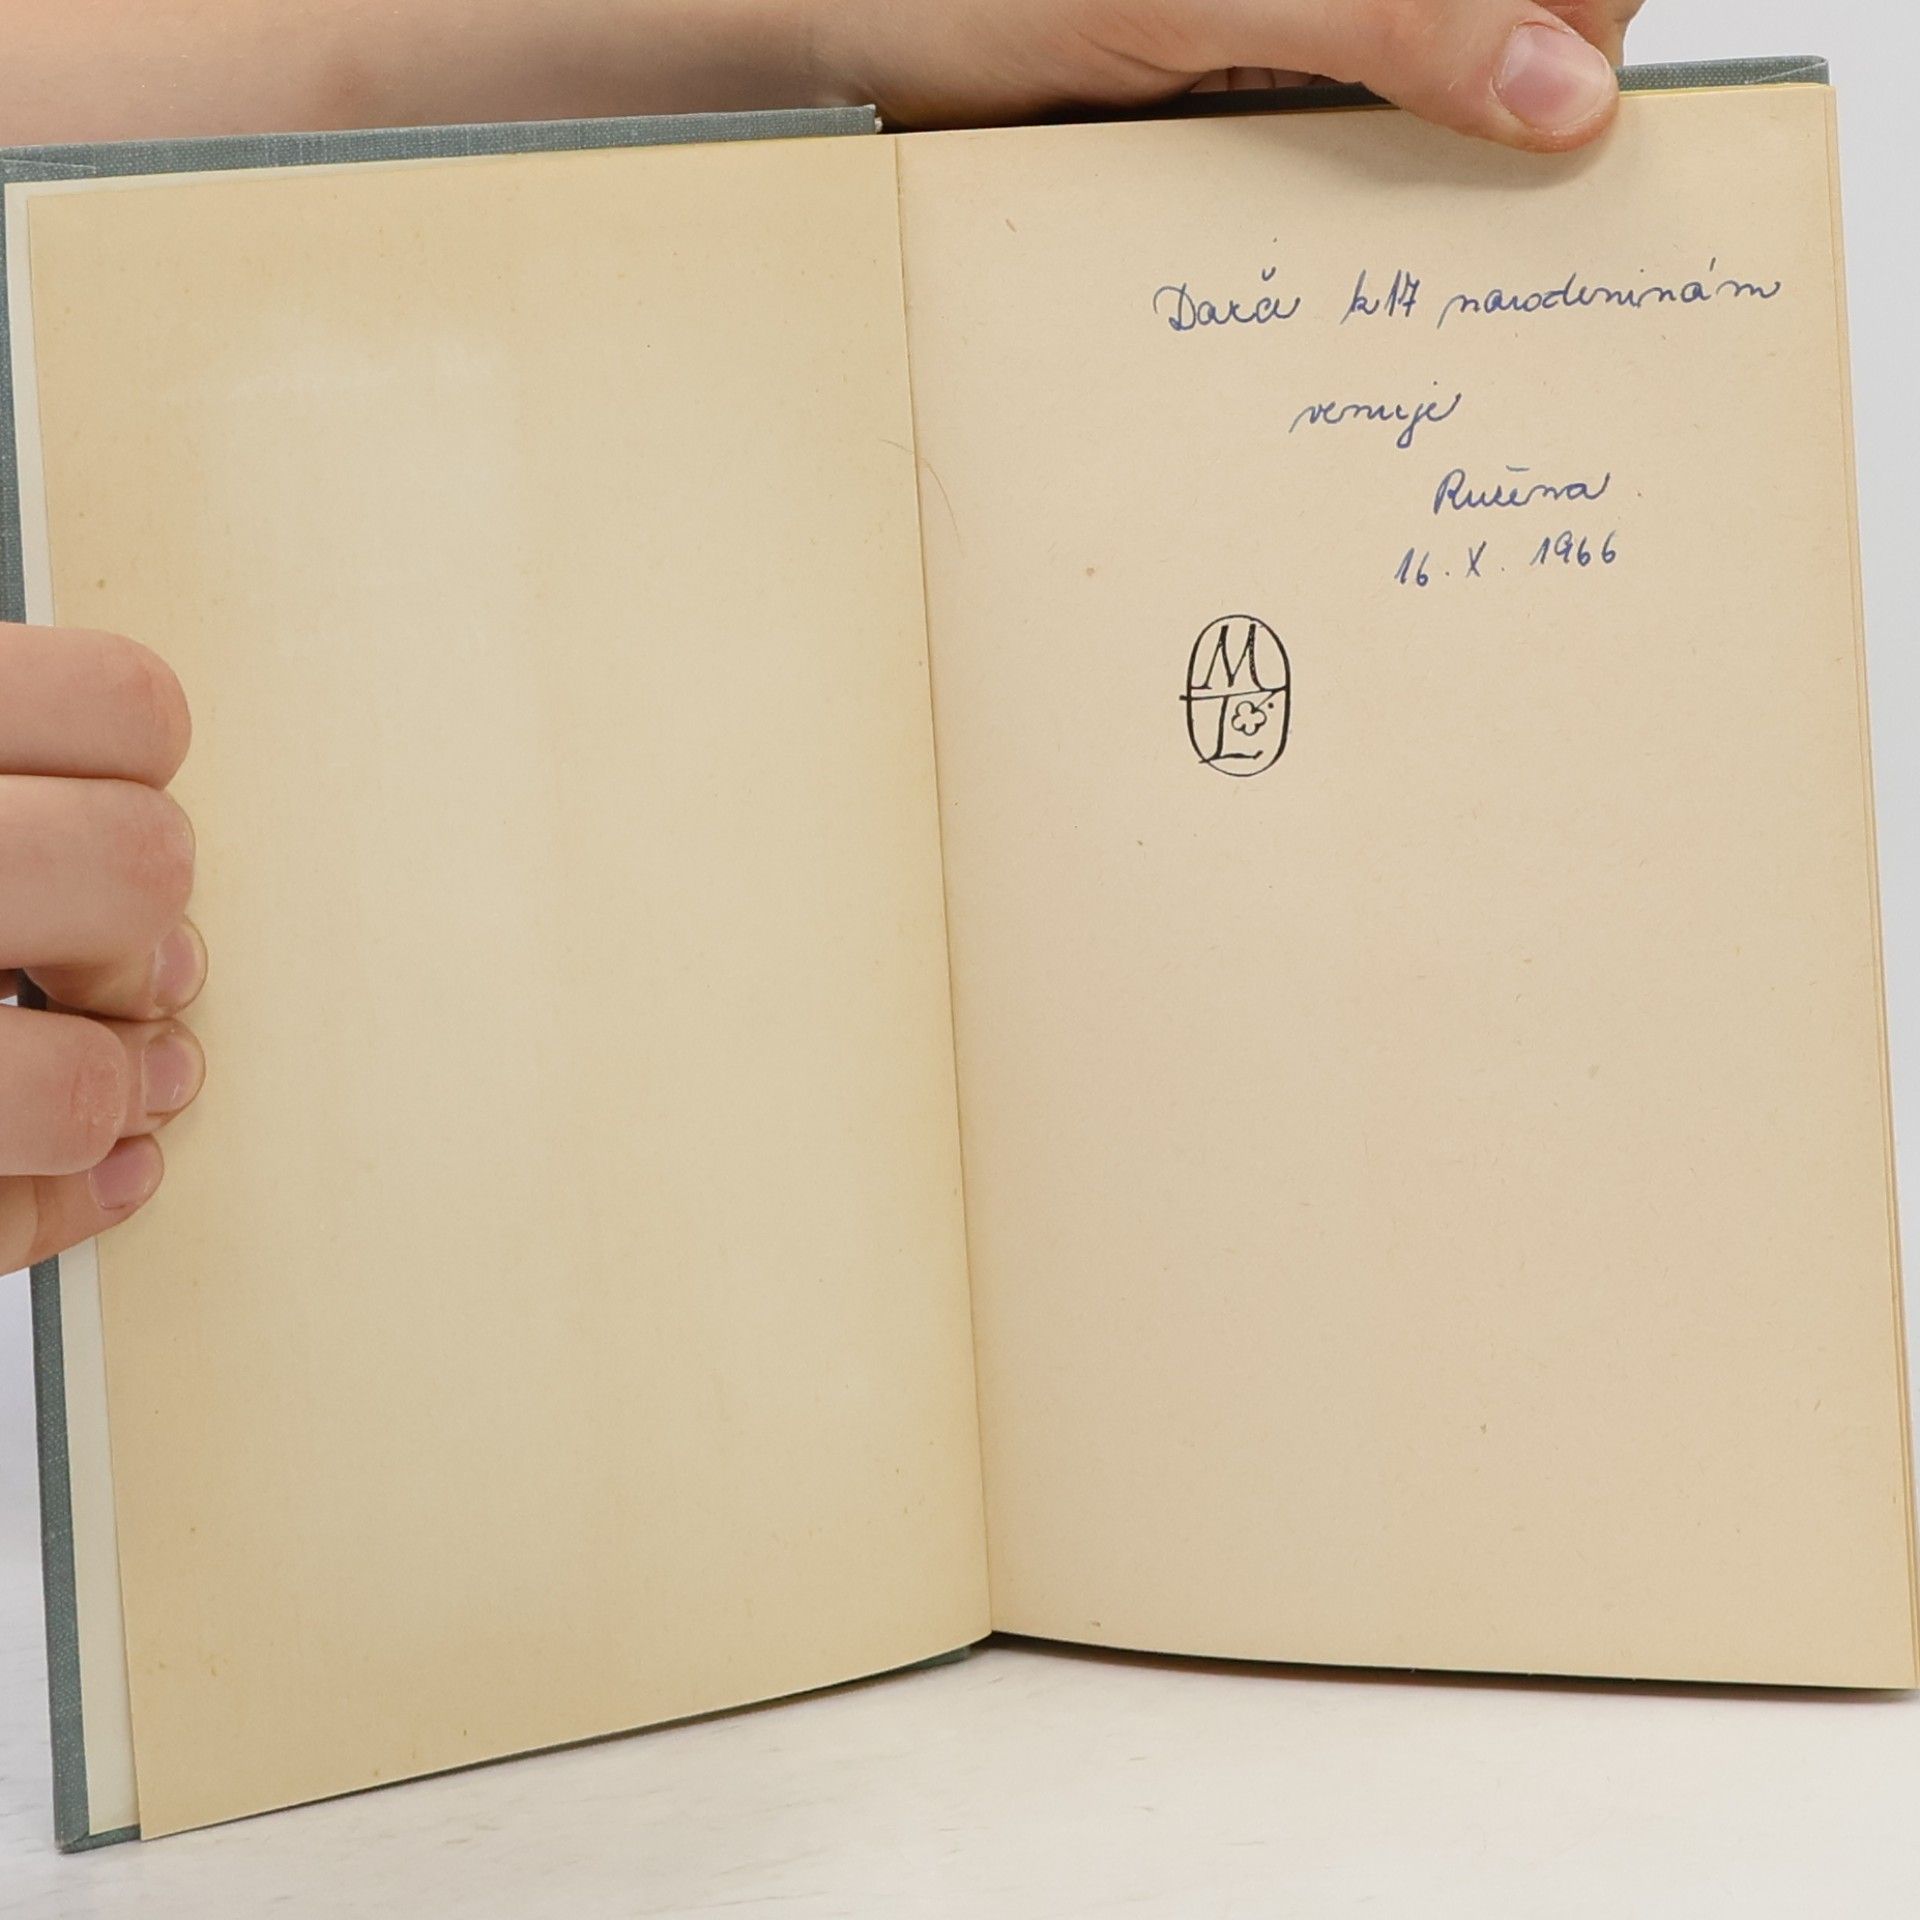 Darči k 17 narodeninám
venuje
Ružena
16. X. 1966
ML